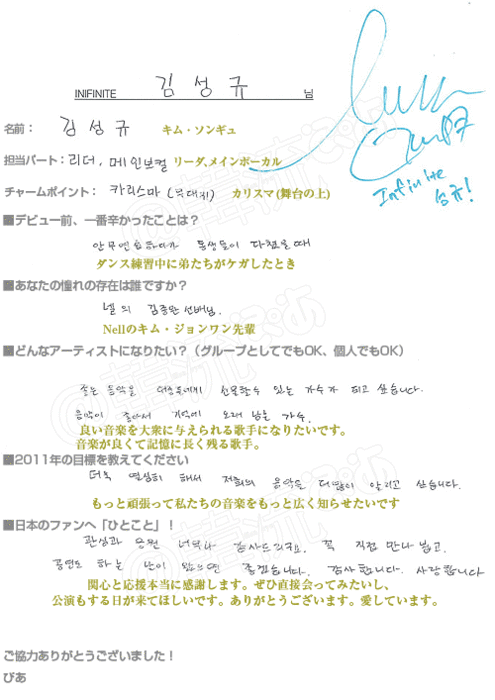 INIFINITE 김성규 님
名前： 김성규 キム・ソンギュ
担当パート：리더, 메인보컬 リーダ,メインボーカル
チャームポイント： 카리스마 (무대위) カリスマ(舞台の上)
■デビュー前、一番辛かったことは？
안무연습하다가 동생들이 다쳤을때
ダンス練習中に弟たちがケガしたとき
■あなたの憧れの存在は誰ですか？
넬의 김종완 선배님.
Nellのキム・ジョンワン先輩
■どんなアーティストになりたい？（グループとしてでもOK、個人でもOK）
좋은 음악을 대중들에게 선물할수 있는 가수가 되고 싶습니다.
음악이 좋아서 기억에 오래 남을 가수.
良い音楽を大衆に与えられる歌手になりたいです。
音楽が良くて記憶に長く残る歌手。
■2011年の目標を教えてください
더욱 열심히 해서 저희의 음악을 더많이 알리고 싶습니다.
もっと頑張って私たちの音楽をもっと広く知らせたいです
■日本のファンへ「ひとこと」！
관심과 응원 너무나 감사드리구요. 꼭 직접 만나 뵙고.
공연도 하는 날이 왔으면 좋겠습니다. 감사합니다. 사랑합니다
関心と応援本当に感謝します。ぜひ直接会ってみたいし、
公演もする日が来てほしいです。ありがとうございます。愛しています。
ご協力ありがとうございました！
ぴあ
Infinite
성규!
@韓流ぴあ